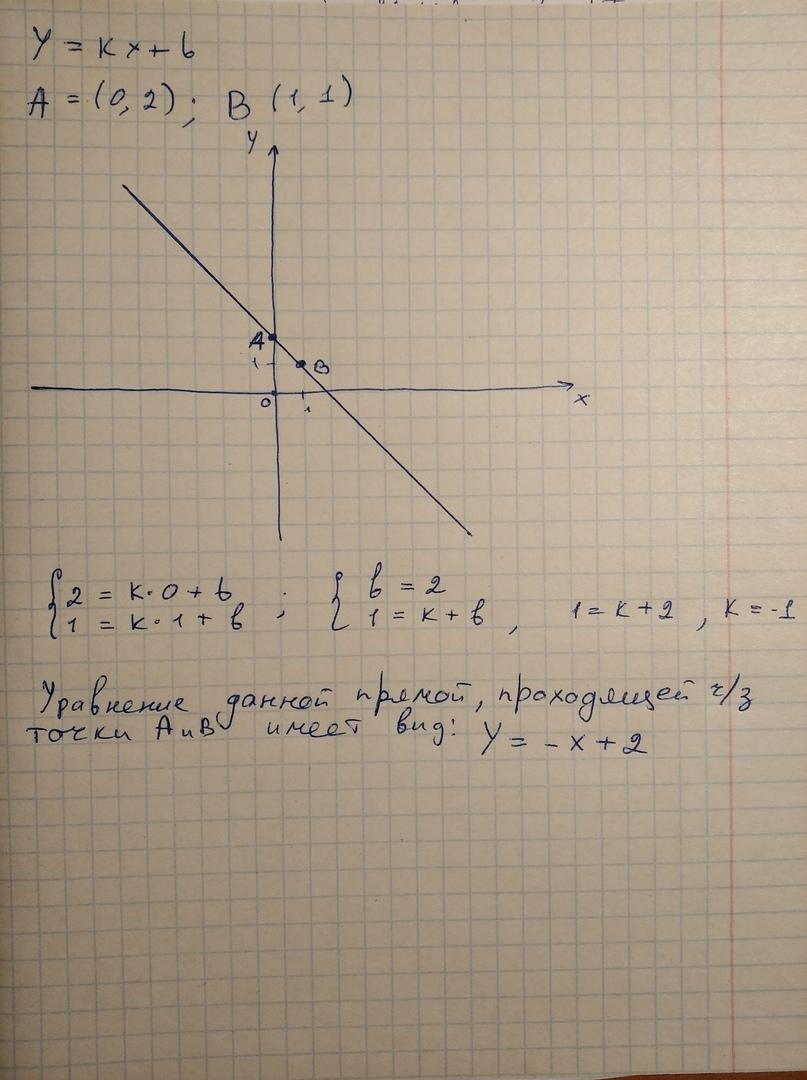 y = kx + b
A = (0, 2); B (1, 1)
y
A
1
B
0
1
x
{2 = k·0 + b ; { b = 2
{1 = k·1 + b { 1 = k + b , 1 = k + 2 , k = -1
Уравнение данной прямой, проходящей ч/з
точки А и В имеет вид: y = -x + 2